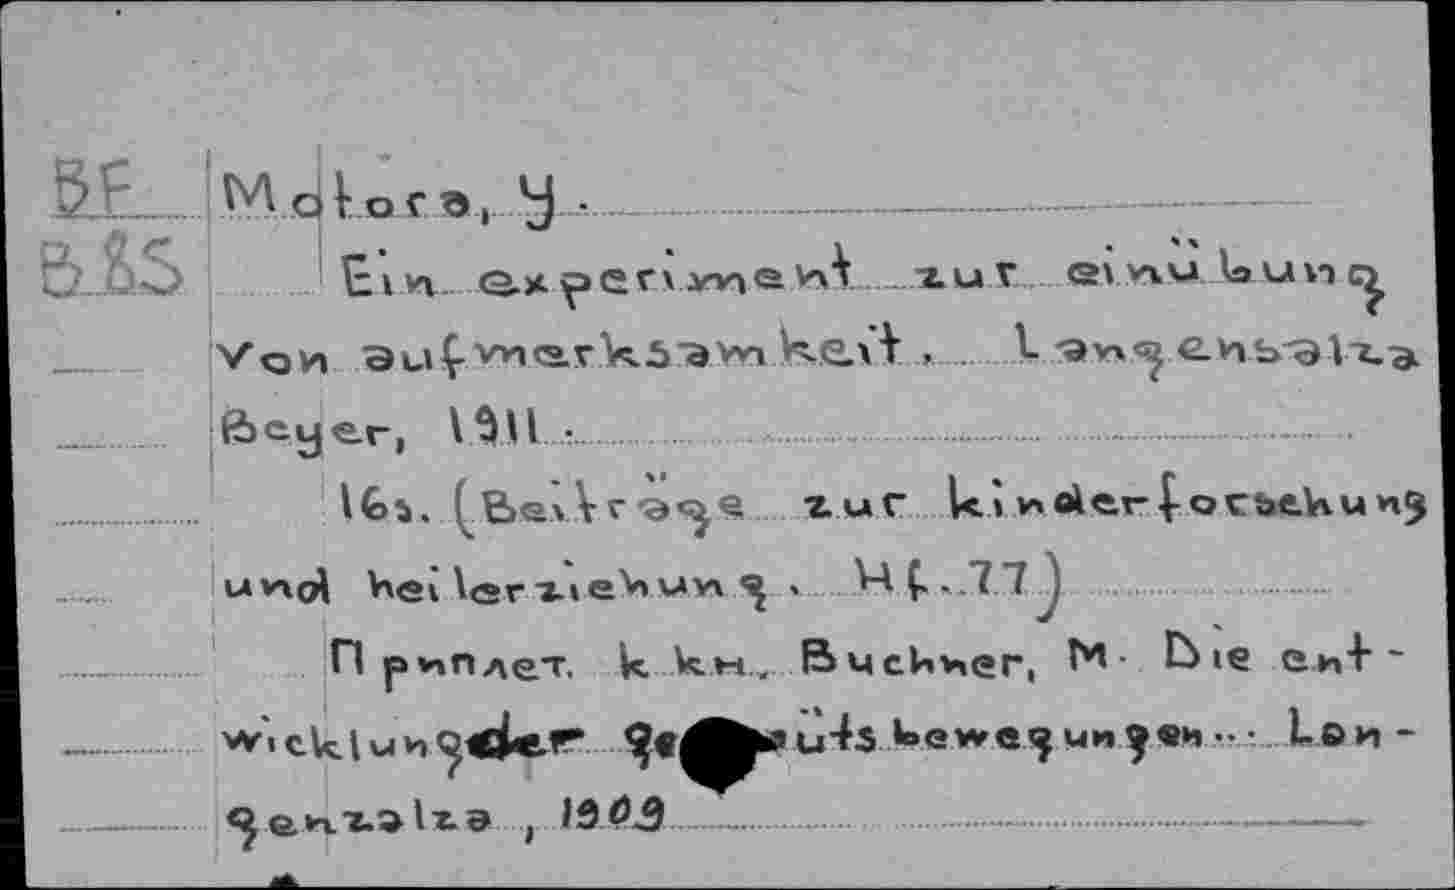 BF Motora, Y.
B85 Ein experiment zur einübung
von aufmerksamkeit, Langensalza
Beyer, 1911.
16s. (Beiträge zur kinderforschung
und heilerziehung. Hf. 77)
Приплет. k кн. Buchner, M. Die ent-
wicklung der gemüts bewegungen... Lan-
genzalza, 1909